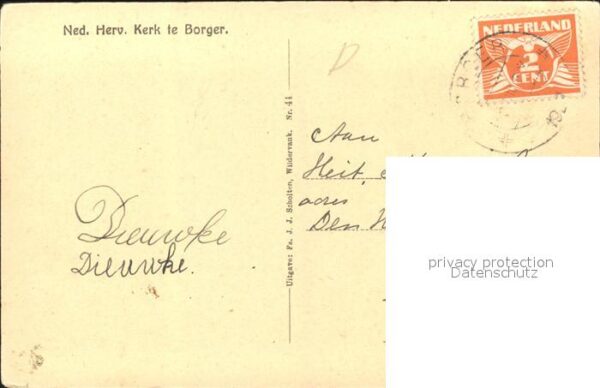 Ned. Herv. Kerk te Borger.
NEDERLAND
2
CENT
D
Uitgave: Fa. J. J. Scholten, Wildervank. Nr. 44
Aan
Heit,
adres
Den
Dieuwke
Dieuwke.
privacy protection
Datenschutz